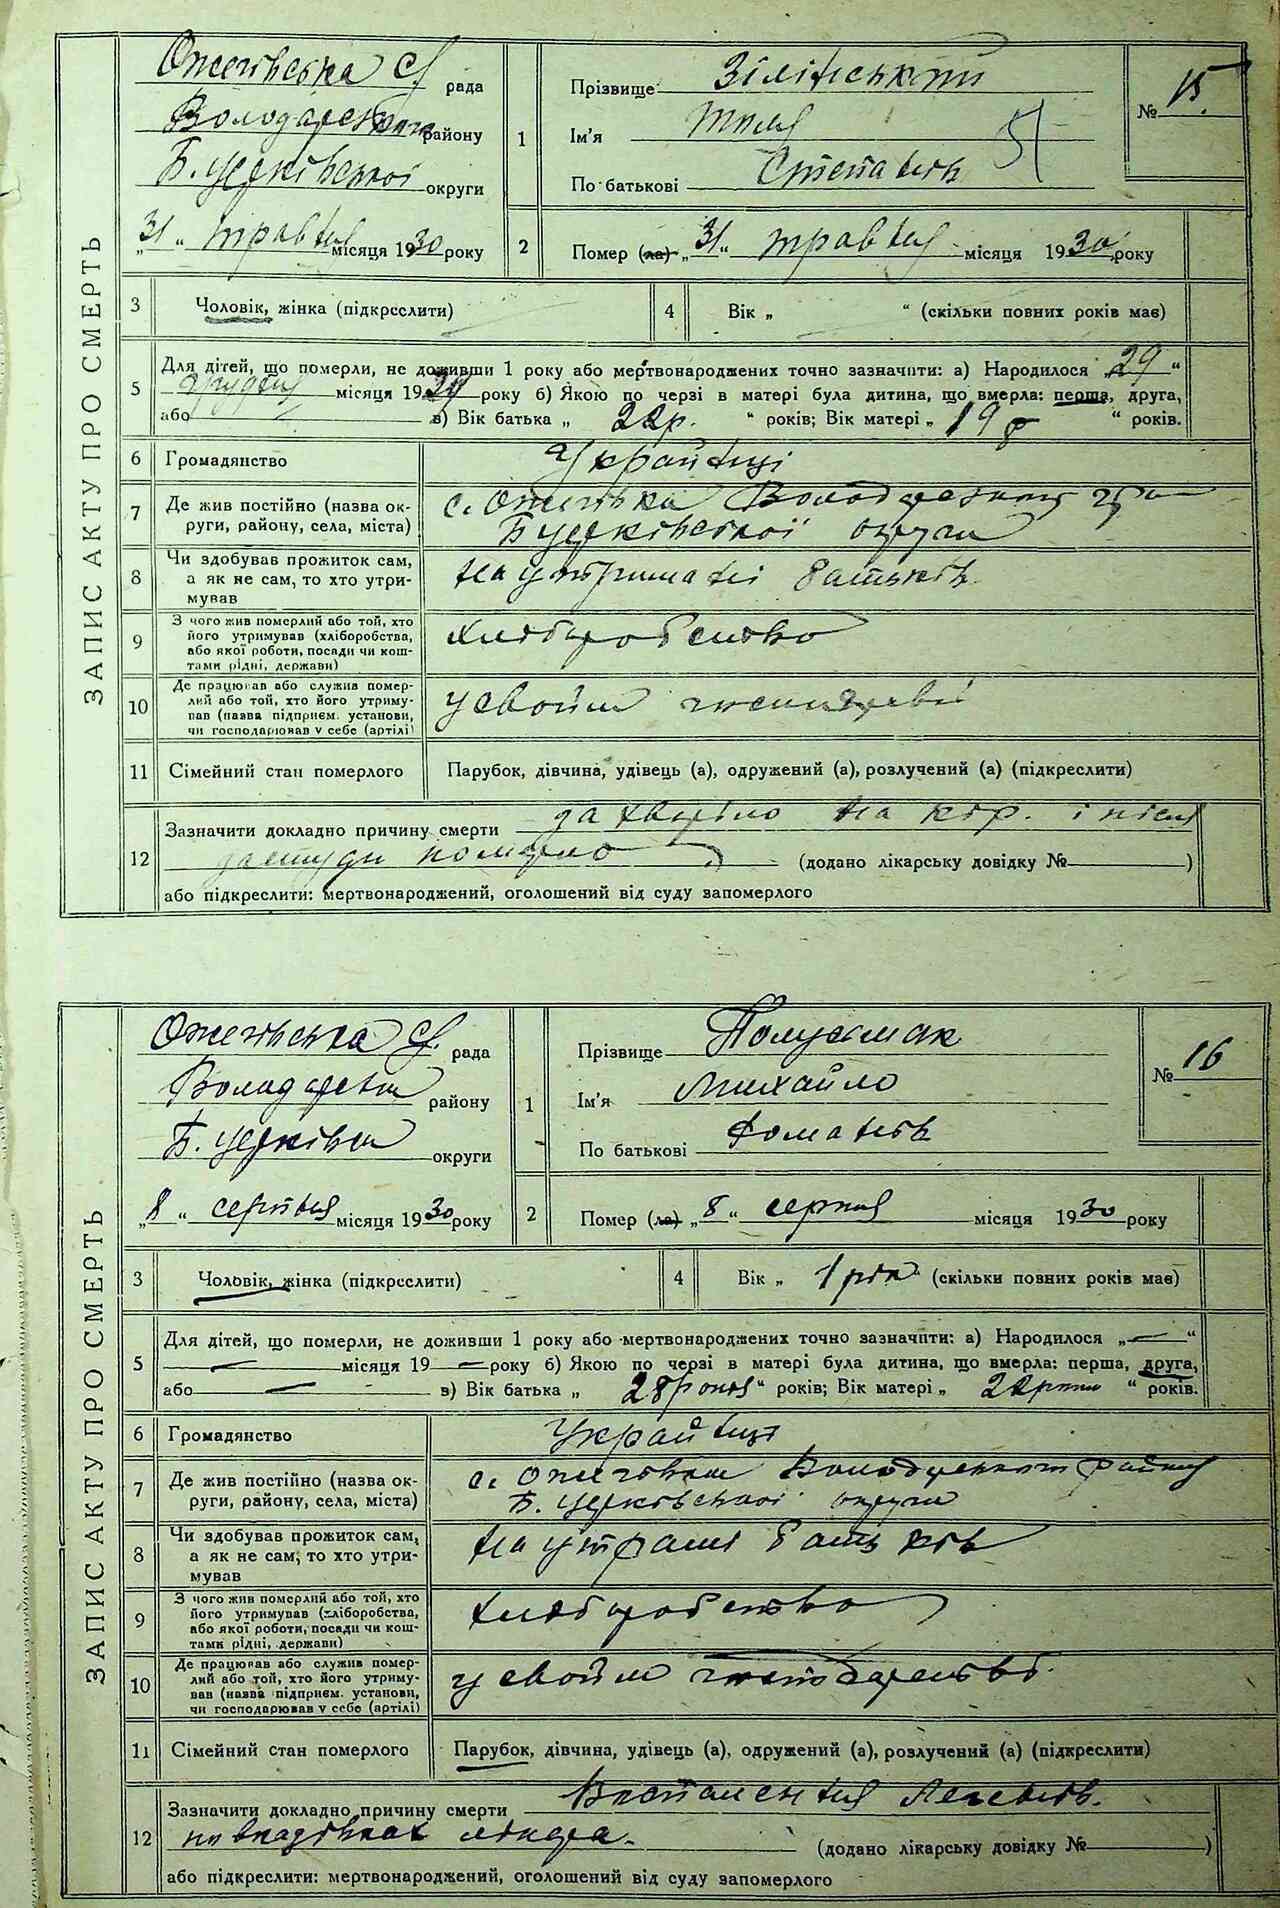 ЗАПИС АКТУ ПРО СМЕРТЬ
Ожегівська с/ рада
Володарськ району
Б. церківської округи
„31“ травня місяця 1930 року
1
Прізвище Зілінський
Ім'я
По батькові Степанів
№ 15.
2 Помер (ла) „31“ травня місяця 1930 року
3 Чоловік, жінка (підкреслити)
4 Вік „ “ (скільки повних років має)
5 Для дітей, що померли, не доживши 1 року або мертвонароджених точно зазначити: а) Народилося „29“
грудня місяця 19 року б) Якою по черзі в матері була дитина, що вмерла: перша, друга,
або в) Вік батька „ 22р. “ років; Вік матері „ 19 р “ років.
6 Громадянство Українці
7 Де жив постійно (назва округи, району, села, міста) с. Ожегівка Володарського
Б церківської округи
8 Чи здобував прожиток сам,
а як не сам, то хто утримував
на утриманні батьків.
9 З чого жив померлий або той, хто
його утримував (хліборобства,
або якої роботи, посади чи коштами рідні, держави)
хліборобство
10 Де працював або служив померлий або той, хто його утримував (назва підприєм. установи,
чи господарював у себе (артілі)
у свойм
11 Сімейний стан померлого Парубок, дівчина, удівець (а), одружений (а), розлучений (а) (підкреслити)
12 Зазначити докладно причину смерти захворіло на кір. і після
застуди померло (додано лікарську довідку № )
або підкреслити: мертвонароджений, оголошений від суду запомерлого
ЗАПИС АКТУ ПРО СМЕРТЬ
Ожегівська с/. рада
Володарськ району
Б. церківськ округи
„8“ серпня місяця 1930 року
1
Прізвище
Ім'я Михайло
По батькові Романів
№ 16
2 Помер (ла) „8“ серпня місяця 1930 року
3 Чоловік, жінка (підкреслити)
4 Вік „ 1 рік “ (скільки повних років має)
5 Для дітей, що померли, не доживши 1 року або мертвонароджених точно зазначити: а) Народилося „—“
— місяця 19 — року б) Якою по черзі в матері була дитина, що вмерла: перша, друга,
або — в) Вік батька „ 28 років “ років; Вік матері „ 22 роки “ років.
6 Громадянство Українці
7 Де жив постійно (назва округи, району, села, міста) с. Ожегівка Володарського району
Б. церківської округи
8 Чи здобував прожиток сам,
а як не сам, то хто утримував
на утрамні батьків
9 З чого жив померлий або той, хто
його утримував (хліборобства,
або якої роботи, посади чи коштами рідні, держави)
хліборобство
10 Де працював або служив померлий або той, хто його утримував (назва підприєм. установи,
чи господарював у себе (артілі)
у свойм господарстві.
11 Сімейний стан померлого Парубок, дівчина, удівець (а), одружений (а), розлучений (а) (підкреслити)
12 Зазначити докладно причину смерти Воспаления Легенів.
по вказівках лікаря. (додано лікарську довідку № )
або підкреслити: мертвонароджений, оголошений від суду запомерлого